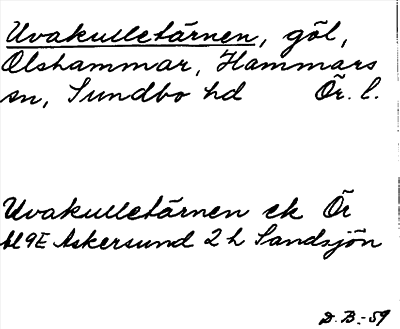 Uvakulletärnen, göl,
Olshammar, Hammars
sn, Sundbo hd Ör. l.
Uvakulletärnen ek Ör
bl 9E Askersund 2 h Sandsjön
D. B. -59